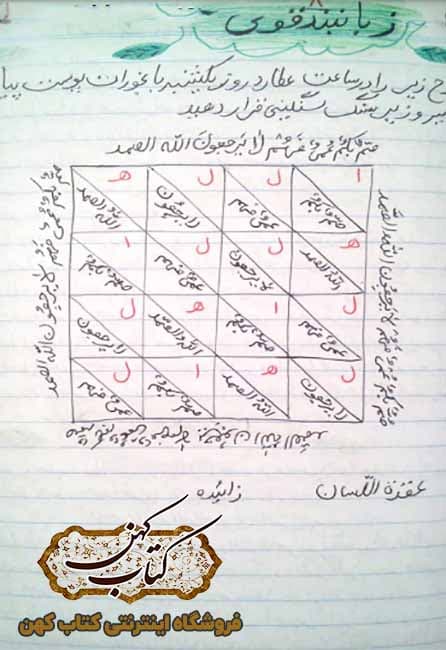 زبانبند قوی
ح زیر را در ساعت عطارد روز یکشنبه با بخوران پوست پیا
یر و زیر سنگ سنگینی قرار دهید
صم بکم عمی فهم لا یرجعون الله الصمد
صم بکم عمی فهم لا یرجعون الله الصمد
صم بکم عمی فهم لا یرجعون الله الصمد
ا ل ل ه
صم بکم عمی فهم لا یرجعون الله الصمد
ه ل ل ا
الله الصمد لا یرجعون عمی فهم صم بکم
ل ا ه ل
عمی فهم صم بکم الله الصمد لا یرجعون
ل ه ا ل
لا یرجعون الله الصمد صم بکم عمی فهم
عقدة اللسان
کتاب کهن
فروشگاه اینترنتی کتاب کهن